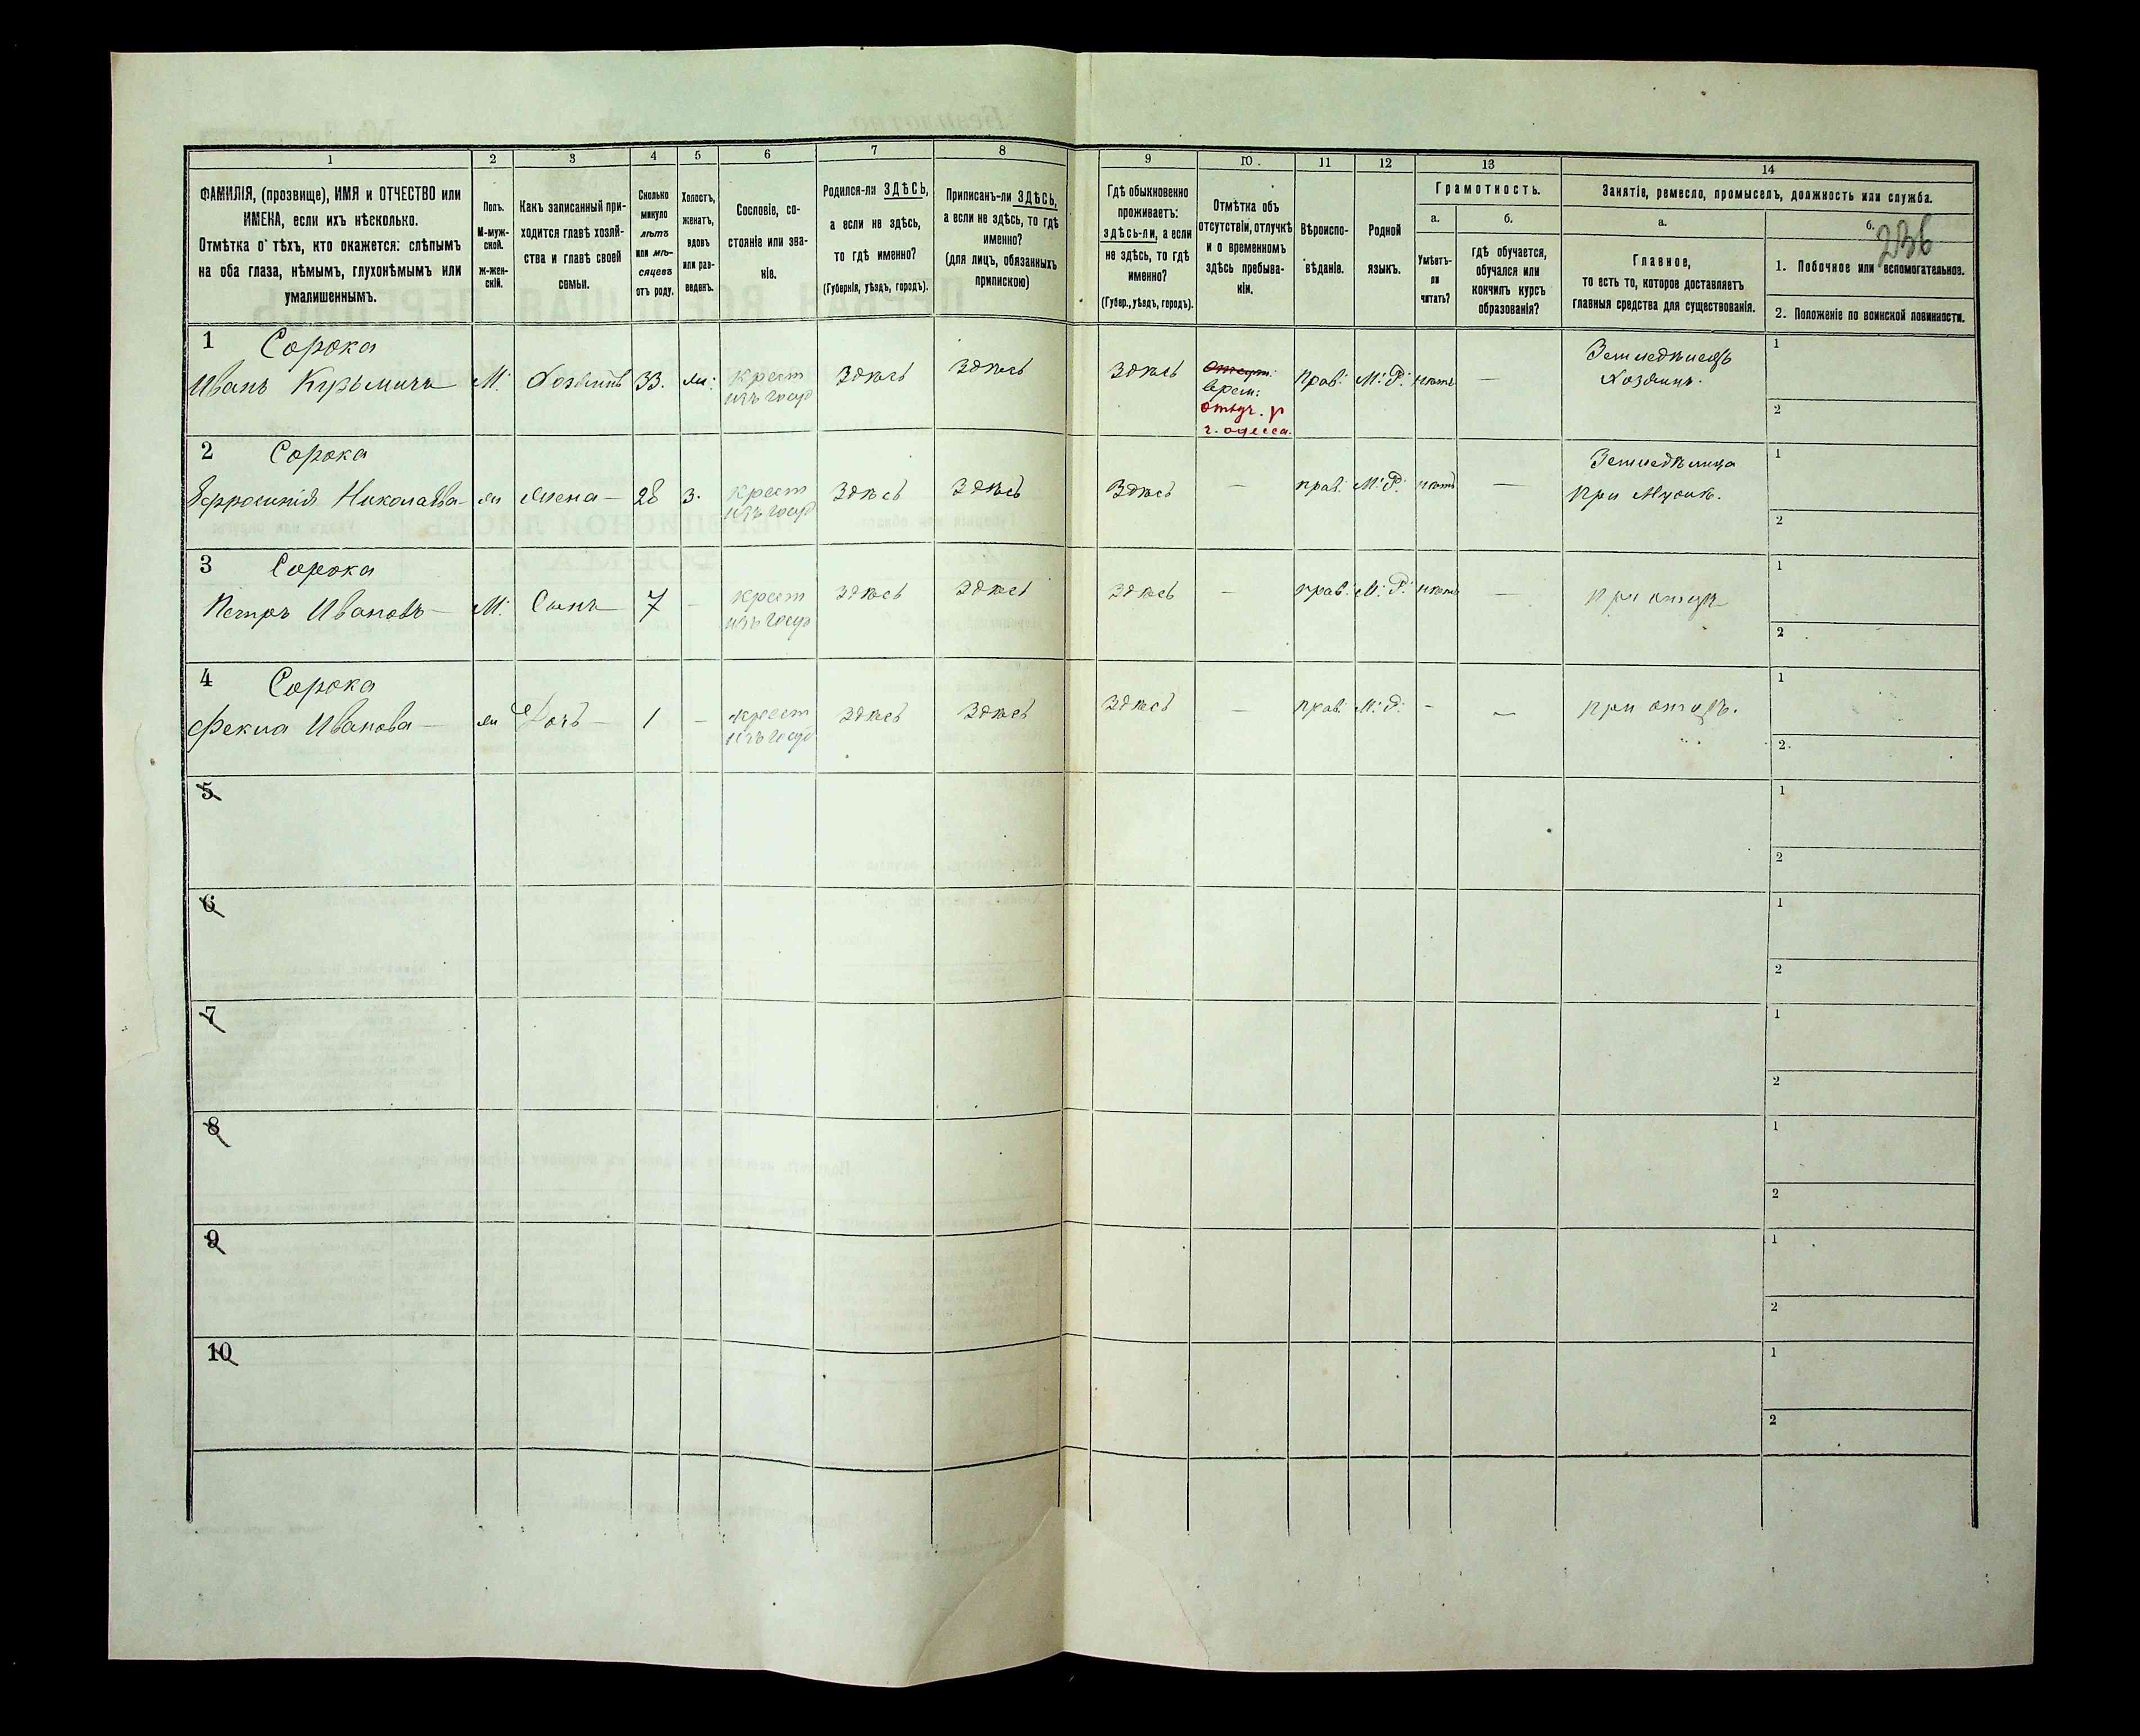 1 2 3 4 5 6 7 8 9 10. 11 12 13 14
ФАМИЛІЯ, (прозвище), ИМЯ и ОТЧЕСТВО или
ИМЕНА, если ихъ нѣсколько.
Отмѣтка о тѣхъ, кто окажется: слѣпымъ
на оба глаза, нѣмымъ, глухонѣмымъ или
умалишеннымъ.
Полъ.
М-муж-
ской.
ж-жен-
скій.
Какъ записанный при-
ходится главѣ хозяй-
ства и главѣ своей
семьи.
Сколько
минуло
лѣтъ
или мѣ-
сяцевъ
отъ роду.
Холостъ,
женатъ,
вдовъ
или раз-
веденъ.
Сословіе, со-
стояніе или зва-
ніе.
Родился-ли ЗДѢСЬ,
а если не здѣсь,
то гдѣ именно?
(Губернія, уѣздъ, городъ).
Приписанъ-ли ЗДѢСЬ,
а если не здѣсь, то гдѣ
именно?
(для лицъ, обязанныхъ
припискою)
Гдѣ обыкновенно
проживаетъ:
здѣсь-ли, а если
не здѣсь, то гдѣ
именно?
(Губер., уѣздъ, городъ).
Отмѣтка объ
отсутствіи, отлучкѣ
и о временномъ
здѣсь пребыва-
ніи.
Вѣроиспо-
вѣданіе.
Родной
языкъ.
Грамотность.
а.
Умѣетъ-
ли
читать?
б.
гдѣ обучается,
обучался или
кончилъ курсъ
образованія?
Занятіе, ремесло, промыселъ, должность или служба.
а.
Главное,
то есть то, которое доставляетъ
главныя средства для существованія.
б.
236
1. Побочное или вспомогательное.
2. Положеніе по воинской повинности.
1 Сорока
Иванъ Кузьмичъ М. Хозяинъ 33. ж: крест
изъ госуд
Здѣсь Здѣсь Здѣсь Отсут.
врем:
отлуч. у
г. Одесса.
прав: М: Р: нѣтъ —
Земледѣлецъ
Хозяинъ.
1
2
2 Сорока
Ефросинія Николаева ж Жена 28 з. крест
изъ госуд
Здѣсь Здѣсь Здѣсь — прав: М: Р: нѣтъ —
Земледѣлица
при Мужѣ.
1
2
3 Сорока
Петръ Ивановъ М: Сынъ 7 — крест
изъ госуд
Здѣсь Здѣсь Здѣсь — прав: М: Р: нѣтъ — при отцѣ
1
2
4 Сорока
Фекла Иванова ж Дочь 1 — крест
изъ госуд
Здѣсь Здѣсь Здѣсь — прав: М: Р: — — при отцѣ.
1
2
5
1
2
6
1
2
7
1
2
8
1
2
9
1
2
10
1
2